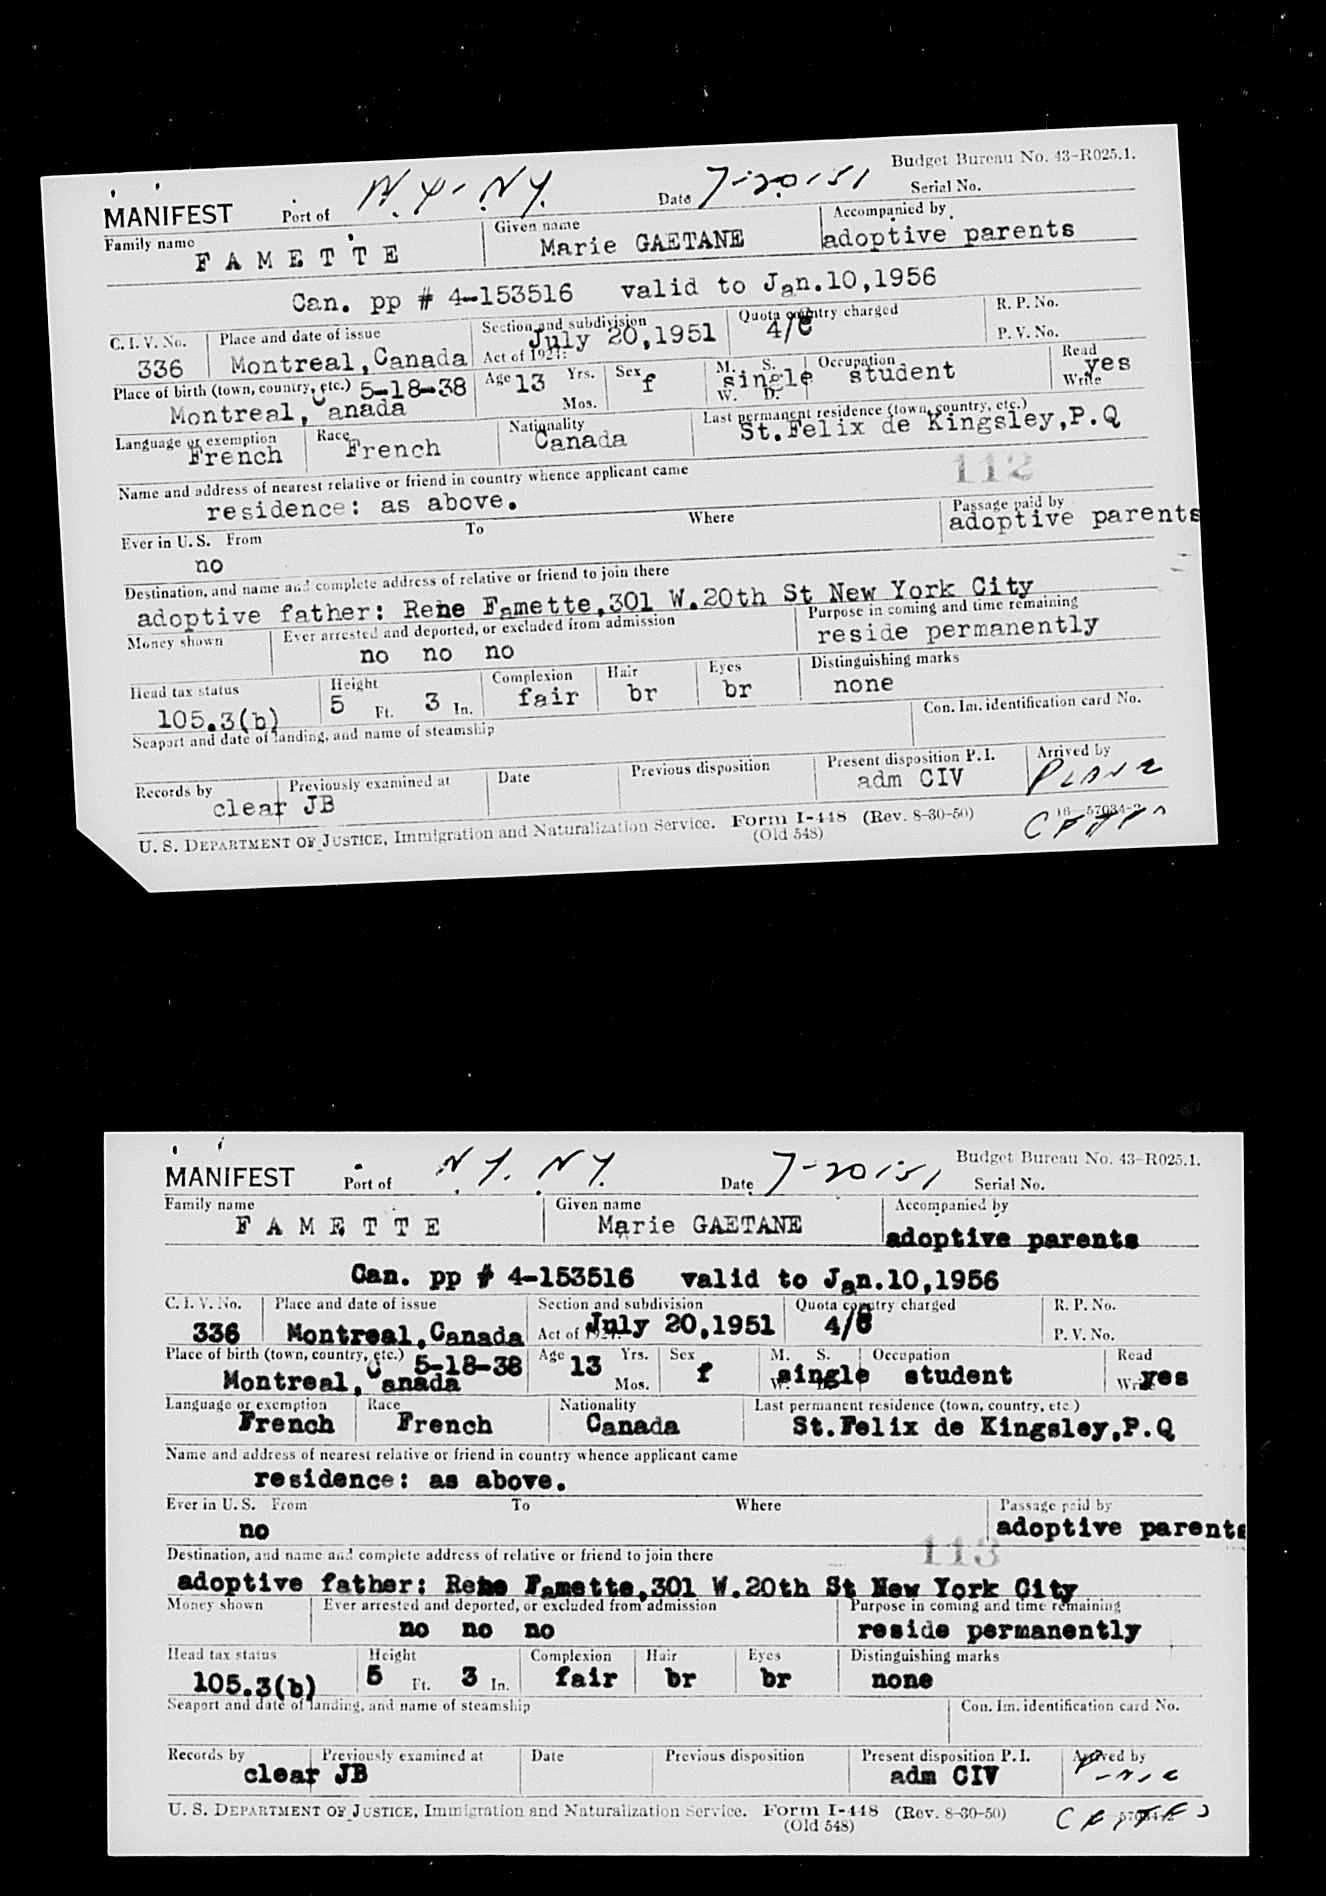 Budget Bureau No. 43-R025.1.
MANIFEST Port of N.Y. N.Y. Date 7-20-51 Serial No.
Family name Given name Accompanied by
F A M E T T E Marie GAETANE adoptive parents
Can. pp # 4-153516 valid to Jan.10,1956
C. I. V. No. Place and date of issue Section and subdivision Quota country charged R. P. No.
336 Montreal,Canada Act of 1924: July 20,1951 4/C P. V. No.
Place of birth (town, country, etc.) 5-18-38 Age 13 Yrs. Sex f M. S. single Occupation student Read yes
Montreal, Canada Mos. W. D. Write
Language or exemption Race Nationality Last permanent residence (town, country, etc.)
French French Canada St.Felix de Kingsley,P.Q
Name and address of nearest relative or friend in country whence applicant came 112
residence: as above.
Ever in U. S. From To Where Passage paid by
no adoptive parents
Destination, and name and complete address of relative or friend to join there
adoptive father: Rene Famette,301 W.20th St New York City
Money shown Ever arrested and deported, or excluded from admission Purpose in coming and time remaining
no no no reside permanently
Head tax status Height Complexion Hair Eyes Distinguishing marks
105.3(b) 5 Ft. 3 In. fair br br none
Seaport and date of landing, and name of steamship Con. Im. identification card No.
Records by Previously examined at Date Previous disposition Present disposition P. I. Arrived by
clear JB adm CIV PLANE
U. S. DEPARTMENT OF JUSTICE, Immigration and Naturalization Service. Form I-448 (Rev. 8-30-50) 16—57034-2
(Old 548)
Budget Bureau No. 43-R025.1.
MANIFEST Port of N.Y. N.Y. Date 7-20-51 Serial No.
Family name Given name Accompanied by
F A M E T T E Marie GAETANE adoptive parents
Can. pp # 4-153516 valid to Jan.10,1956
C. I. V. No. Place and date of issue Section and subdivision Quota country charged R. P. No.
336 Montreal,Canada Act of 1924: July 20,1951 4/C P. V. No.
Place of birth (town, country, etc.) 5-18-38 Age 13 Yrs. Sex f M. S. single Occupation student Read yes
Montreal, Canada Mos. W. D. Write
Language or exemption Race Nationality Last permanent residence (town, country, etc.)
French French Canada St.Felix de Kingsley,P.Q
Name and address of nearest relative or friend in country whence applicant came
residence: as above.
Ever in U. S. From To Where Passage paid by
no adoptive parents
Destination, and name and complete address of relative or friend to join there 113
adoptive father: Rene Famette,301 W.20th St New York City
Money shown Ever arrested and deported, or excluded from admission Purpose in coming and time remaining
no no no reside permanently
Head tax status Height Complexion Hair Eyes Distinguishing marks
105.3(b) 5 Ft. 3 In. fair br br none
Seaport and date of landing, and name of steamship Con. Im. identification card No.
Records by Previously examined at Date Previous disposition Present disposition P. I. Arrived by
clear JB adm CIV
U. S. DEPARTMENT OF JUSTICE, Immigration and Naturalization Service. Form I-448 (Rev. 8-30-50)
(Old 548)